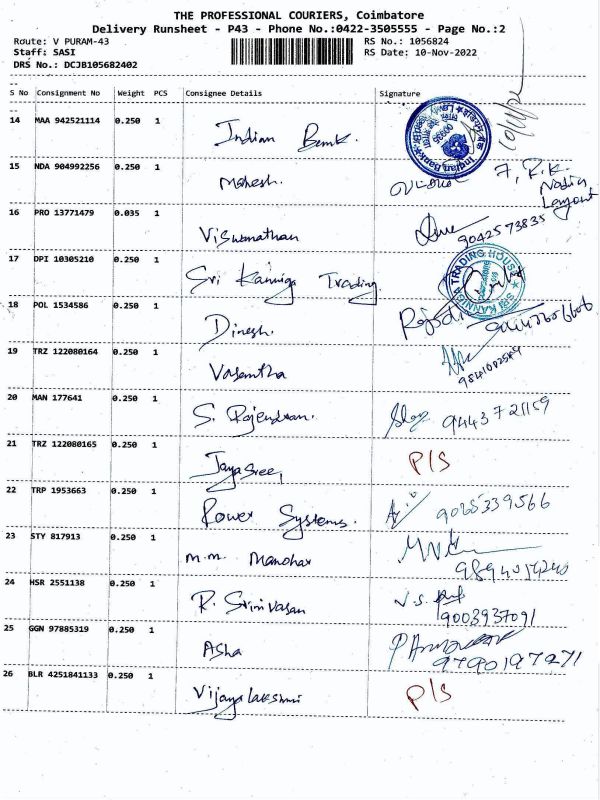 THE PROFESSIONAL COURIERS, Coimbatore
Delivery Runsheet - P43 - Phone No.:0422-3505555 - Page No.:2
Route: V PURAM-43 RS No.: 1056824
Staff: SASI RS Date: 10-Nov-2022
DRS No.: DCJB105682402
S No Consignment No Weight PCS Consignee Details Signature
14 MAA 942521114 0.250 1 Indian Bank.
15 NDA 904992256 0.250 1 Mahesh. 7, R.K. Nadia Layout
16 PRO 13771479 0.035 1 Viswanathan 9042573835
17 DPI 10305210 0.250 1 Sri Kanniga Trading. TRADING HOUSE SRI KANNIGA
18 POL 1534586 0.250 1 Dinesh.
19 TRZ 122080164 0.250 1 Vasantha
20 MAN 177641 0.250 1 S. Rajendran. 9443721159
21 TRZ 122080165 0.250 1 Jayasree, P/S
22 TRP 1953663 0.250 1 Power Systems.
23 STY 817913 0.250 1 M.M. Manohar
24 HSR 2551138 0.250 1 R. Srinivasan 9003937091
25 GGN 97885319 0.250 1 Asha 9790197271
26 BLR 4251841133 0.250 1 Vijayalakshmi P/S